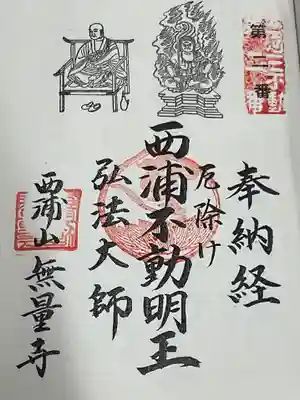 第二番
奉納経
厄除け
西浦不動明王
弘法大師
西浦山
無量寺